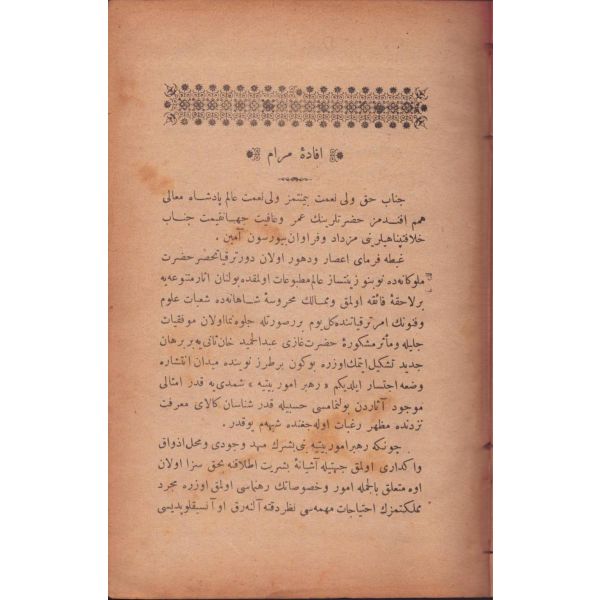 افادهٔ مرام
جناب حق ولی نعمت بیمنتمز ولی نعمت عالم پادشاه معالی
همم افندمز حضرتلرینك عمر و عافیت جهانقیمت جناب
خلافتپناهیلرینی مزداد و فراوان بیورسون آمین .
غبطه فرمای اعصار و دهور اولان دور ترقیاتحصر حضرت
ملوکانه‌ده نوبنو زینتساز عالم مطبوعات اولمقده بولنان آثار متنوعه‌یه
بر لاحقهٔ فائقه اولمق و ممالك محروسهٔ شاهانه‌ده شعبات علوم
و فنونك امر ترقیاتنده کل یوم بر صورتله جلوه نما اولان موفقیات
جلیله و مآثر مشکورهٔ حضرت غازی عبدالحمید خان ثانی‌یه بر برهان
جدید تشکیل ایتمك اوزره بوکون بر طرز نوینده میدان انتشاره
وضعه اجتسار ایلدیکم « رهبر امور بیتیه » شمدی‌یه قدر امثالی
موجود آثاردن بولنمامسی حسبیله قدر شناسان کالای معرفت
نزدنده مظهر رغبات اوله‌جغنده شبهه‌م یوقدر .
چونکه رهبر امور بیتیه بنی بشرك مهد وجودی و محل اذواق
و اکداری اولمق جهتیله آشیانهٔ بشریت اطلاقنه بحق سزا اولان
اوه متعلق بالجمله امور و خصوصاتك رهنماسی اولمق اوزره مجرد
مملکتمزك احتیاجات مهمه‌سی نظر دقته آلنه‌رق او آنسیقلوپدیسی